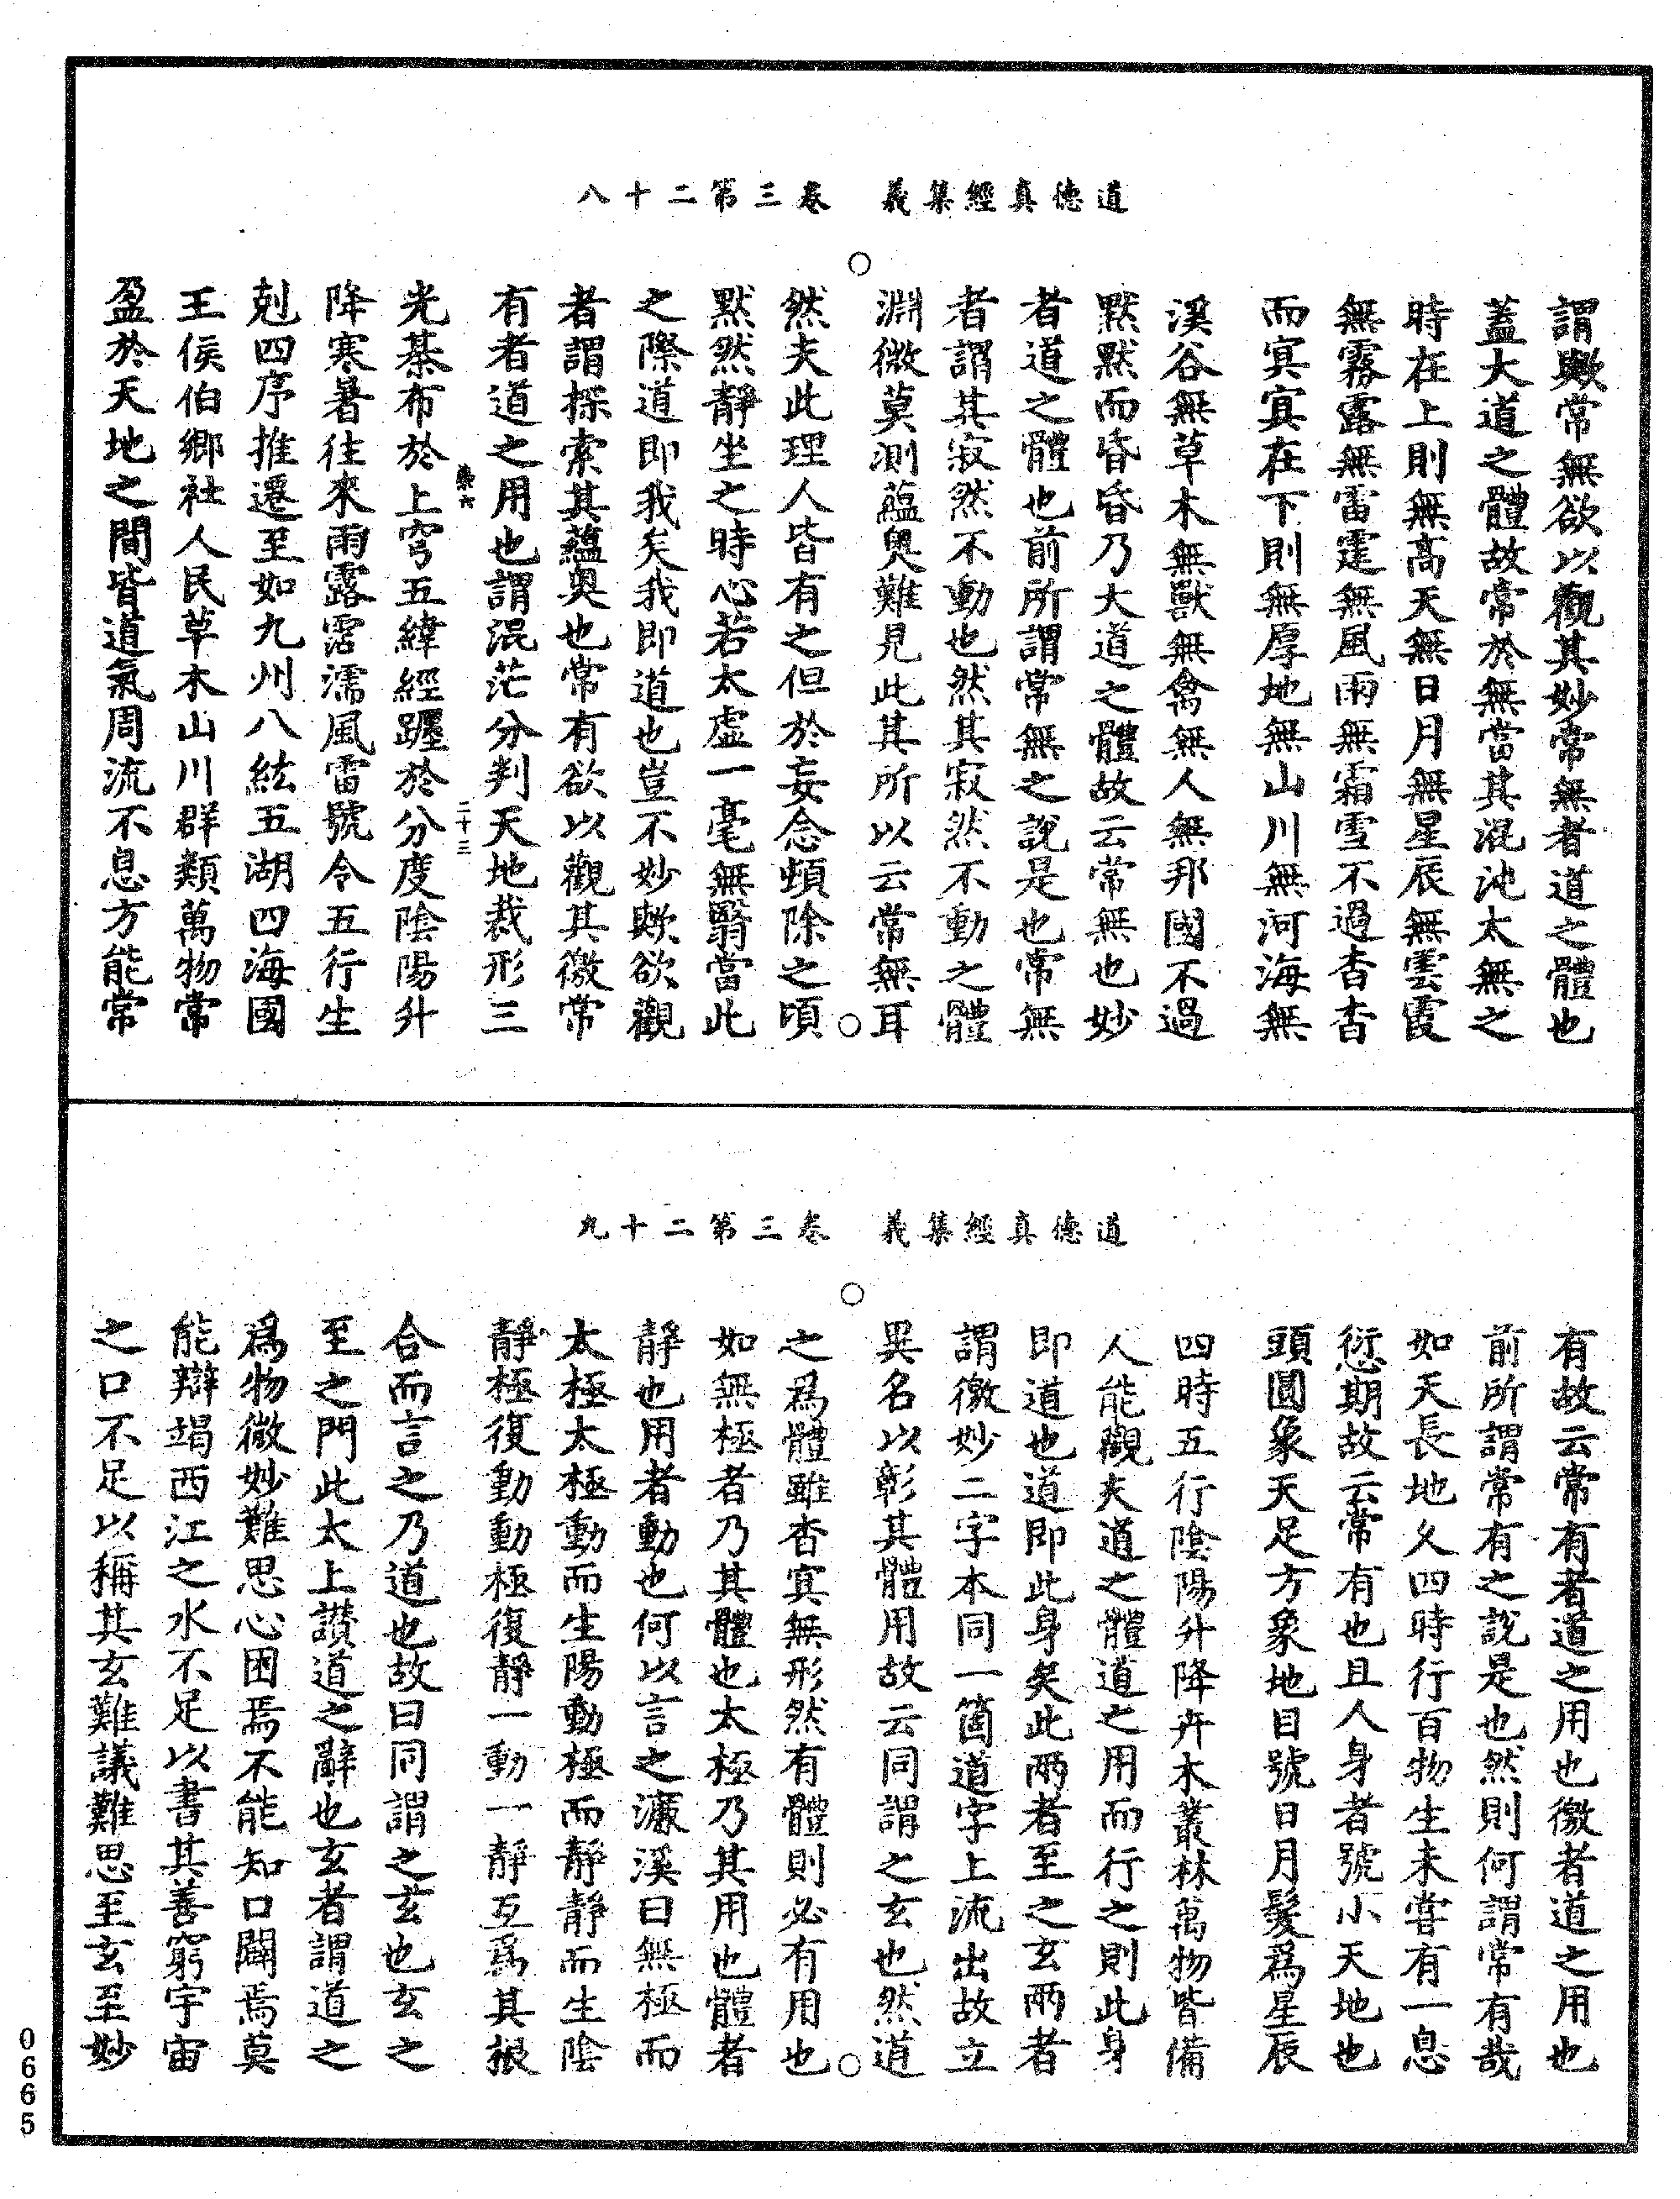 道德真經集義　卷三第二十八
謂歟常無欲以觀其妙常無者道之體也
蓋大道之體故常於無當其混沌太無之
時在上則無高天無日月無星辰無雲霞
無霧露無雷霆無風雨無霜雪不過杳杳
而寘寘在下則無厚地無山川無河海無
溪谷無草木無獸無禽無人無邦國不過
默默而昏昏乃大道之體故云常無也妙
者道之體也前所謂常無之說是也常無
者謂其寂然不動也然其寂然不動之體
淵微莫測蘊奧難見此其所以云常無耳
然夫此理人皆有之但於妄念頓除之頃
默然靜坐之時心若太虛一毫無翳當此
之際道即我矣我即道也豈不妙歟欲觀
者謂探索其蘊奧也常有欲以觀其徼常
有者道之用也謂混茫分判天地裁形三
光棊布於上穹五緯經躔於分度陰陽升
降寒暑往來雨露霑濡風雷號令五行生
剋四序推遷至如九州八紘五湖四海國
王侯伯鄉社人民草木山川群類萬物常
盈於天地之間皆道氣周流不息方能常
二十三
道德真經集義　卷三第二十九
有故云常有者道之用也徼者道之用也
前所謂常有之說是也然則何謂常有哉
如天長地久四時行百物生未嘗有一息
愆期故云常有也且人身者號小天地也
頭圓象天足方象地目號日月髮為星辰
四時五行陰陽升降卉木叢林萬物皆備
人能觀夫道之體道之用而行之則此身
即道也道即此身矣此兩者至之玄兩者
謂徼妙二字本同一箇道字上流出故立
異名以彰其體用故云同謂之玄也然道
之為體雖杳寘無形然有體則必有用也
如無極者乃其體也太極乃其用也體者
靜也用者動也何以言之濂溪曰無極而
太極太極動而生陽動極而靜靜而生陰
靜極復動動極復靜一動一靜互為其根
合而言之乃道也故曰同謂之玄也玄之
至之門此太上讚道之辭也玄者謂道之
為物微妙難思心困焉不能知口闢焉莫
能辯竭西江之水不足以書其善窮宇宙
之口不足以稱其玄難議難思至玄至妙
0665